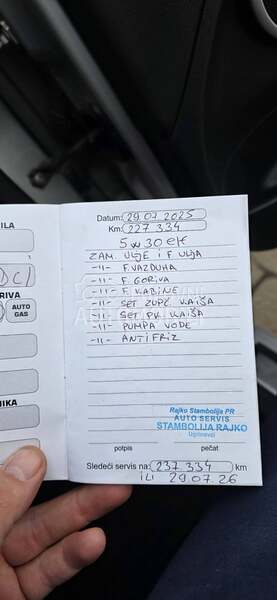 Datum: 29.07.2025
Km: 227 334
5w30
ZAM. ULJE I F ULJA
-11- F. VAZDUHA
-11- F. GORIVA
-11- F. KABINE
-11- SET ZUPČ KAIŠA
-11- SET PK KAIŠA
-11- PUMPA VODE
-11- ANTIFRIZ
DCI
AUTO
GAS
Rajko Stambolija PR
AUTO SERVIS
STAMBOLIJA RAJKO
Ugrinovci
potpis pečat
Sledeći servis na: 237 334 km
ILI 29.07.26